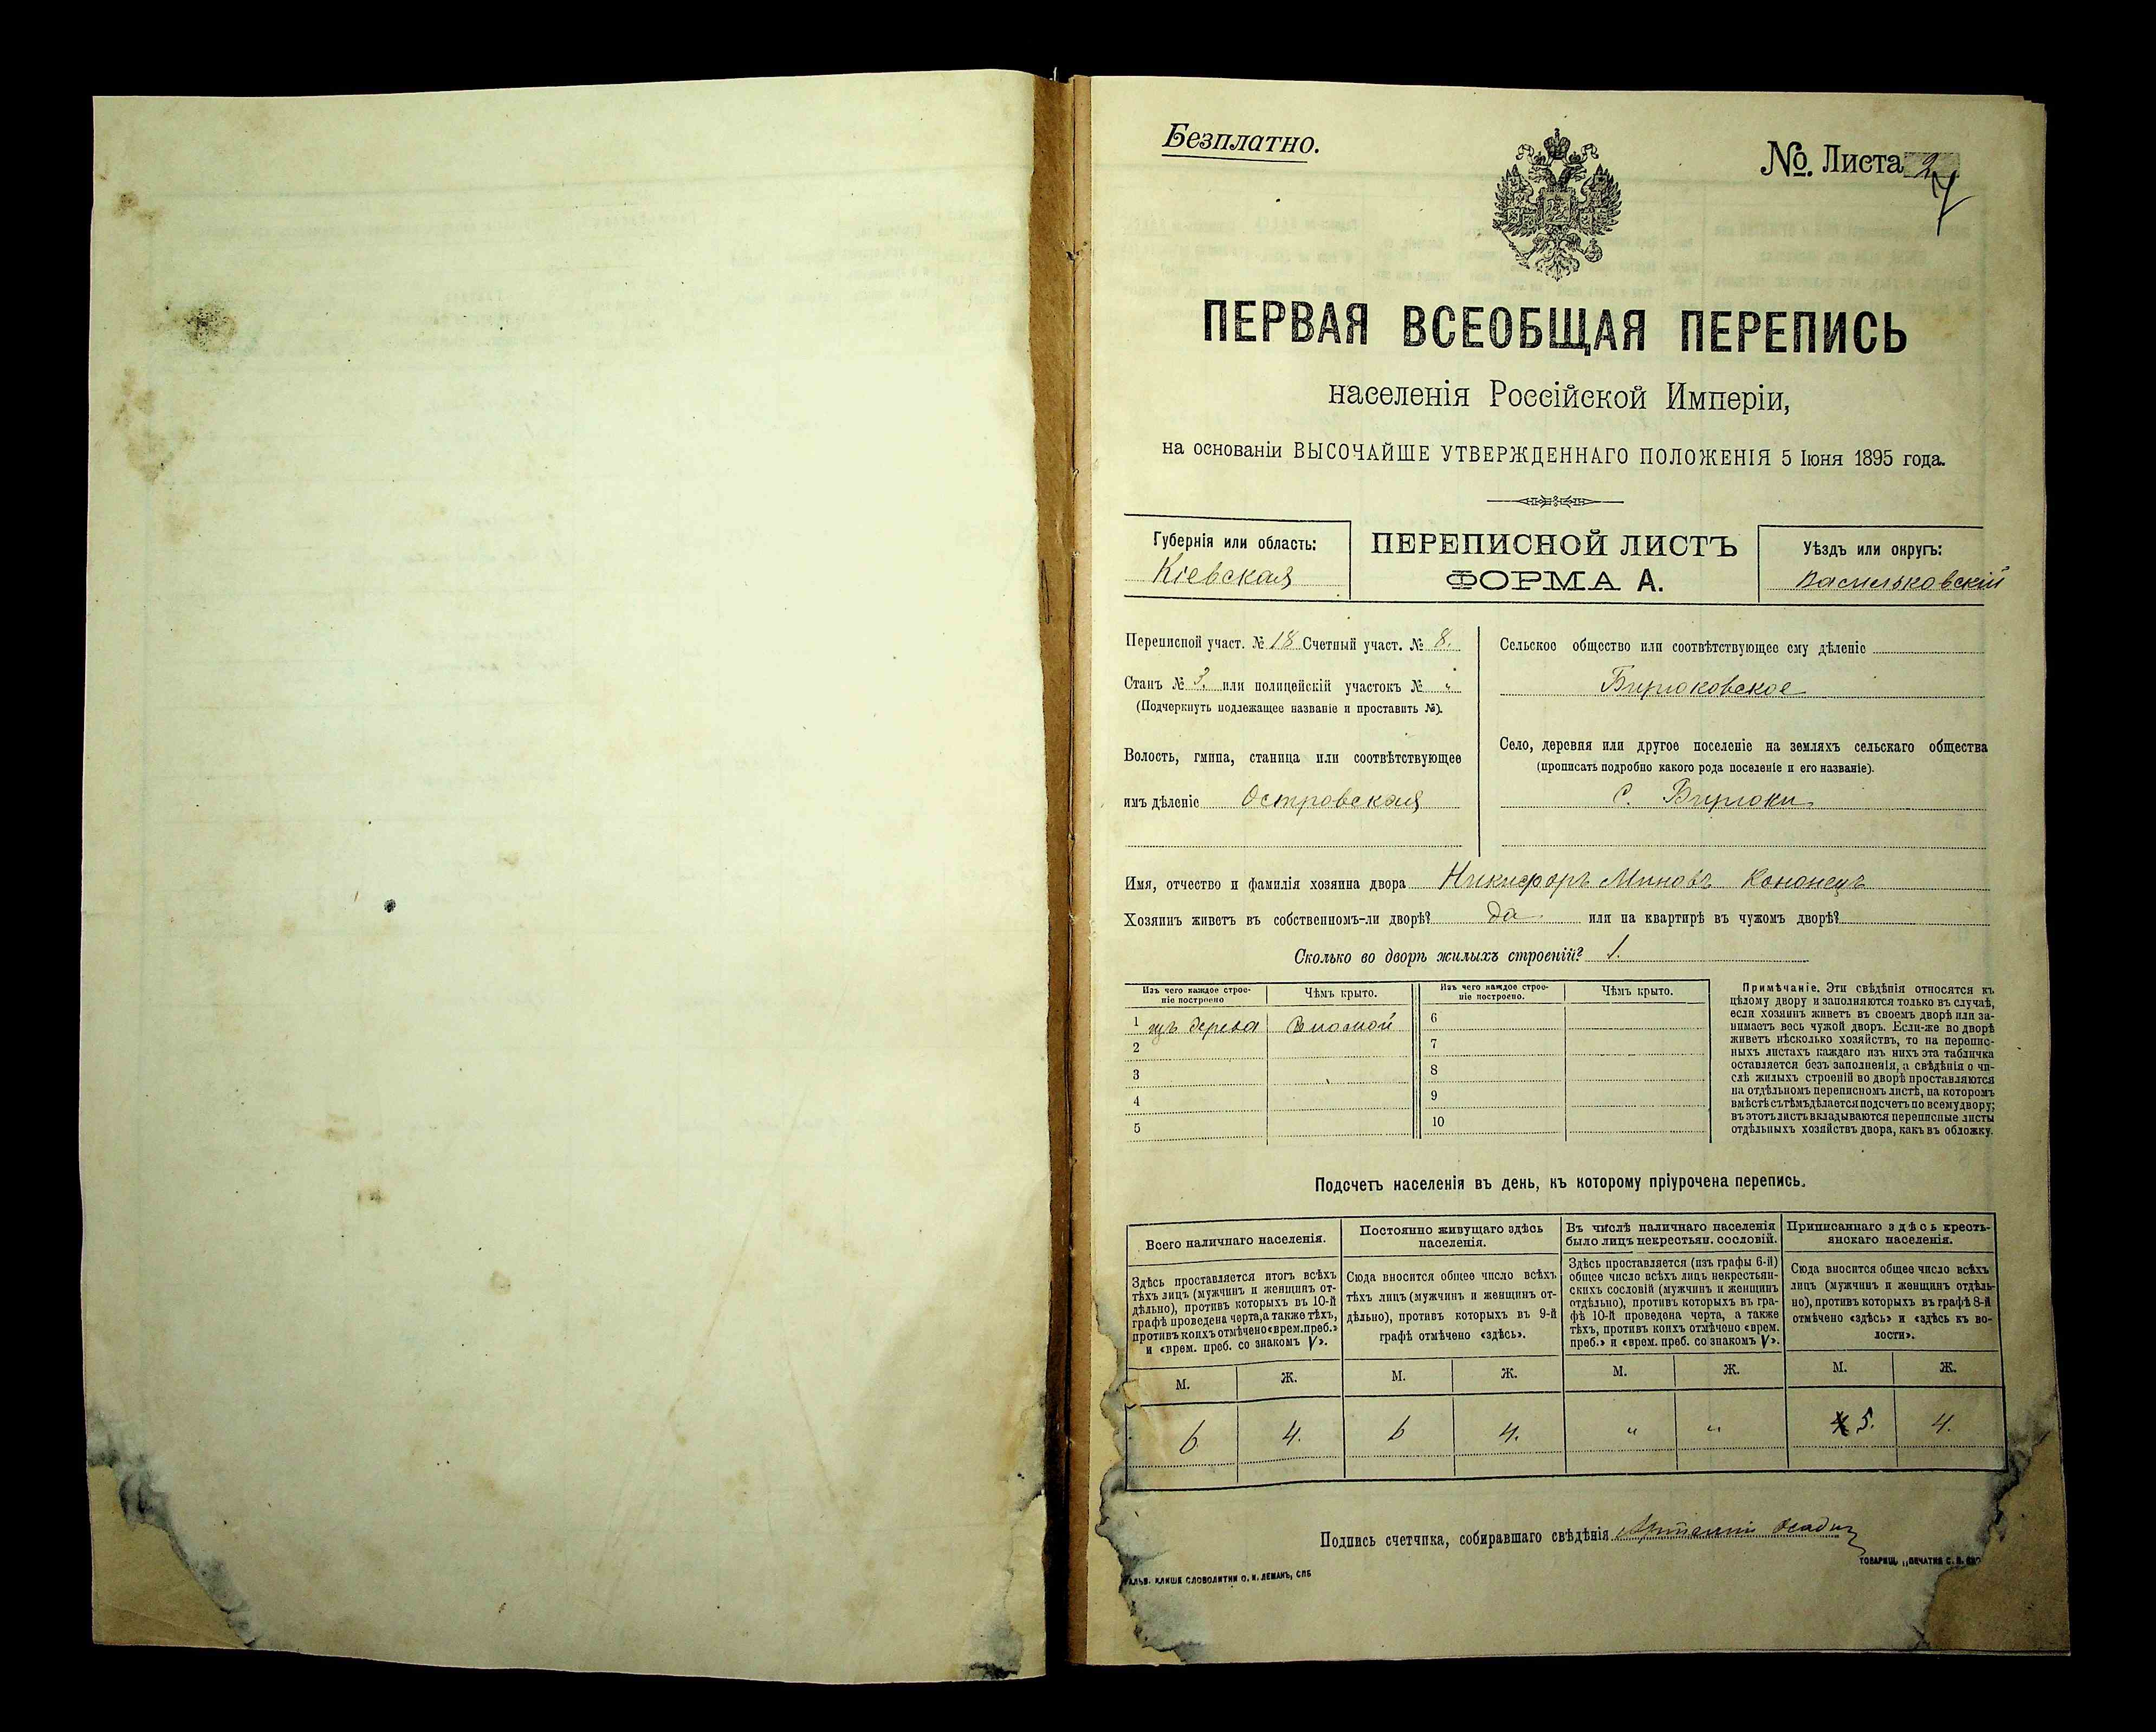 Безплатно.
№ Листа
ПЕРВАЯ ВСЕОБЩАЯ ПЕРЕПИСЬ
населенія Россійской Имперіи,
на основаніи ВЫСОЧАЙШЕ УТВЕРЖДЕННАГО ПОЛОЖЕНІЯ 5 Іюня 1895 года.
Губернія или область:
Кіевская
ПЕРЕПИСНОЙ ЛИСТЪ
ФОРМА А.
Уѣздъ или округъ:
Васильковскій
Переписной участ. № 18 Счетный участ. № 8.
Станъ № 3. или полицейскій участокъ № "
(Подчеркнуть подлежащее названіе и проставить №).
Волость, гмина, станица или соотвѣтствующее
имъ дѣленіе Островская
Сельское общество или соотвѣтствующее ему дѣленіе
Бирюковское
Село, деревня или другое поселеніе на земляхъ сельскаго общества
(прописать подробно какого рода поселеніе и его названіе).
С. Бирюки
Имя, отчество и фамилія хозяина двора Никифоръ Миновъ Кононецъ
Хозяинъ живетъ въ собственномъ-ли дворѣ? да или на квартирѣ въ чужомъ дворѣ?
Сколько во дворѣ жилыхъ строеній? 1.
Изъ чего каждое строеніе построено
Чѣмъ крыто.
Изъ чего каждое строеніе построено.
Чѣмъ крыто.
1 изъ дерева соломой
2
3
4
5
6
7
8
9
10
Примѣчаніе. Эти свѣдѣнія относятся къ
цѣлому двору и заполняются только въ случаѣ,
если хозяинъ живетъ въ своемъ дворѣ или за-
нимаетъ весь чужой дворъ. Если-же во дворѣ
живетъ нѣсколько хозяйствъ, то на перепис-
ныхъ листахъ каждаго изъ нихъ эта табличка
оставляется безъ заполненія, а свѣдѣнія о чи-
слѣ жилыхъ строеній во дворѣ проставляются
на отдѣльномъ переписномъ листѣ, на которомъ
вмѣстѣ съ тѣмъ дѣлается подсчетъ по всему двору;
въ этотъ листъ вкладываются переписные листы
отдѣльныхъ хозяйствъ двора, какъ въ обложку.
Подсчетъ населенія въ день, къ которому пріурочена перепись.
Всего наличнаго населенія.
Здѣсь проставляется итогъ всѣхъ
тѣхъ лицъ (мужчинъ и женщинъ от-
дѣльно), противъ которыхъ въ 10-й
графѣ проведена черта, а также тѣхъ,
противъ коихъ отмѣчено «врем. преб.»
и «врем. преб. со знакомъ V».
Постоянно живущаго здѣсь
населенія.
Сюда вносится общее число всѣхъ
тѣхъ лицъ (мужчинъ и женщинъ от-
дѣльно), противъ которыхъ въ 9-й
графѣ отмѣчено «здѣсь».
Въ числѣ наличнаго населенія
было лицъ некрестьян. сословій.
Здѣсь проставляется (изъ графы 6-й)
общее число всѣхъ лицъ некрестьян-
скихъ сословій (мужчинъ и женщинъ
отдѣльно), противъ которыхъ въ гра-
фѣ 10-й проведена черта, а также
тѣхъ, противъ коихъ отмѣчено «врем.
преб.» и «врем. преб. со знакомъ V».
Приписаннаго здѣсь кресть-
янскаго населенія.
Сюда вносится общее число всѣхъ
лицъ (мужчинъ и женщинъ отдѣль-
но), противъ которыхъ въ графѣ 8-й
отмѣчено «здѣсь» и «здѣсь къ во-
лости».
М. Ж. М. Ж. М. Ж. М. Ж.
6 4. 6 4. " " 5. 4.
Подпись счетчика, собиравшаго свѣдѣнія
КЛИШЕ СЛОВОЛИТНИ О. И. ЛЕМАНЪ, СПБ
ТОВАРИЩ. „ПЕЧАТНЯ С. П.